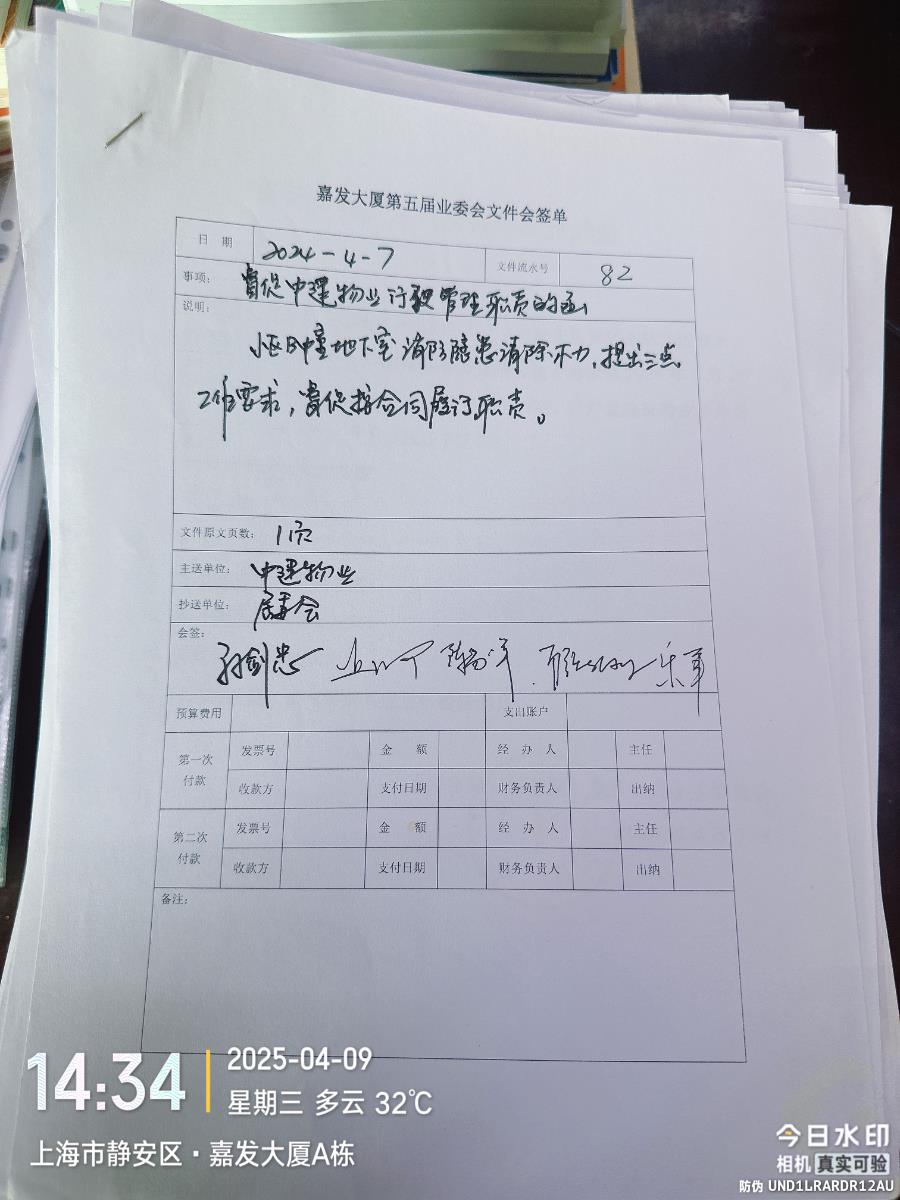 嘉发大厦第五届业委会文件会签单
日 期 2024-4-7 文件流水号 82
事项: 督促中建物业行使管理职责的函
说明:
地下室消防隐患清除不力,提出三点
工作要求,督促按合同履行职责。
文件原文页数: 1页
主送单位: 中建物业
抄送单位: 居委会
会签: 孙剑忠
预算费用 支出账户
第一次付款 发票号 金 额 经 办 人 主任
收款方 支付日期 财务负责人 出纳
第二次付款 发票号 金 额 经 办 人 主任
收款方 支付日期 财务负责人 出纳
备注:
14:34 2025-04-09
星期三 多云 32℃
上海市静安区·嘉发大厦A栋
今日水印
相机 真实可验
防伪 UND1LRARDR12AU